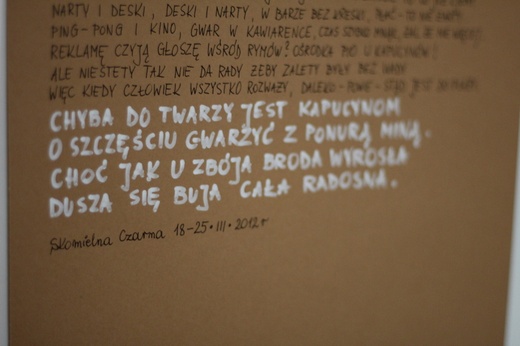 NARTY I DESKI, DESKI I NARTY, W BARZE BEZ
PING-PONG I KINO, GWAR W KAWIARENCE, CZAS SZYBKO MIJA,
REKLAMĘ CZYJĄ GŁOSZĘ WŚRÓD RYMÓW? OŚRODKA U KAPUCYNÓW!
ALE NIESTETY TAK NIE DA RADY ŻEBY ZALETY BYŁY BEZ WADY
WIĘC KIEDY CZŁOWIEK WSZYSTKO ROZWAŻY, DALEKO JEST
CHYBA DO TWARZY JEST KAPUCYNOM
O SZCZĘŚCIU GWARZYĆ Z PONURĄ MINĄ.
CHOĆ JAK U ZBÓJA BRODA WYROSŁA
DUSZA SIĘ BUJA CAŁA RADOSNA.
Skomielna Czarna 18-25•III•2012r